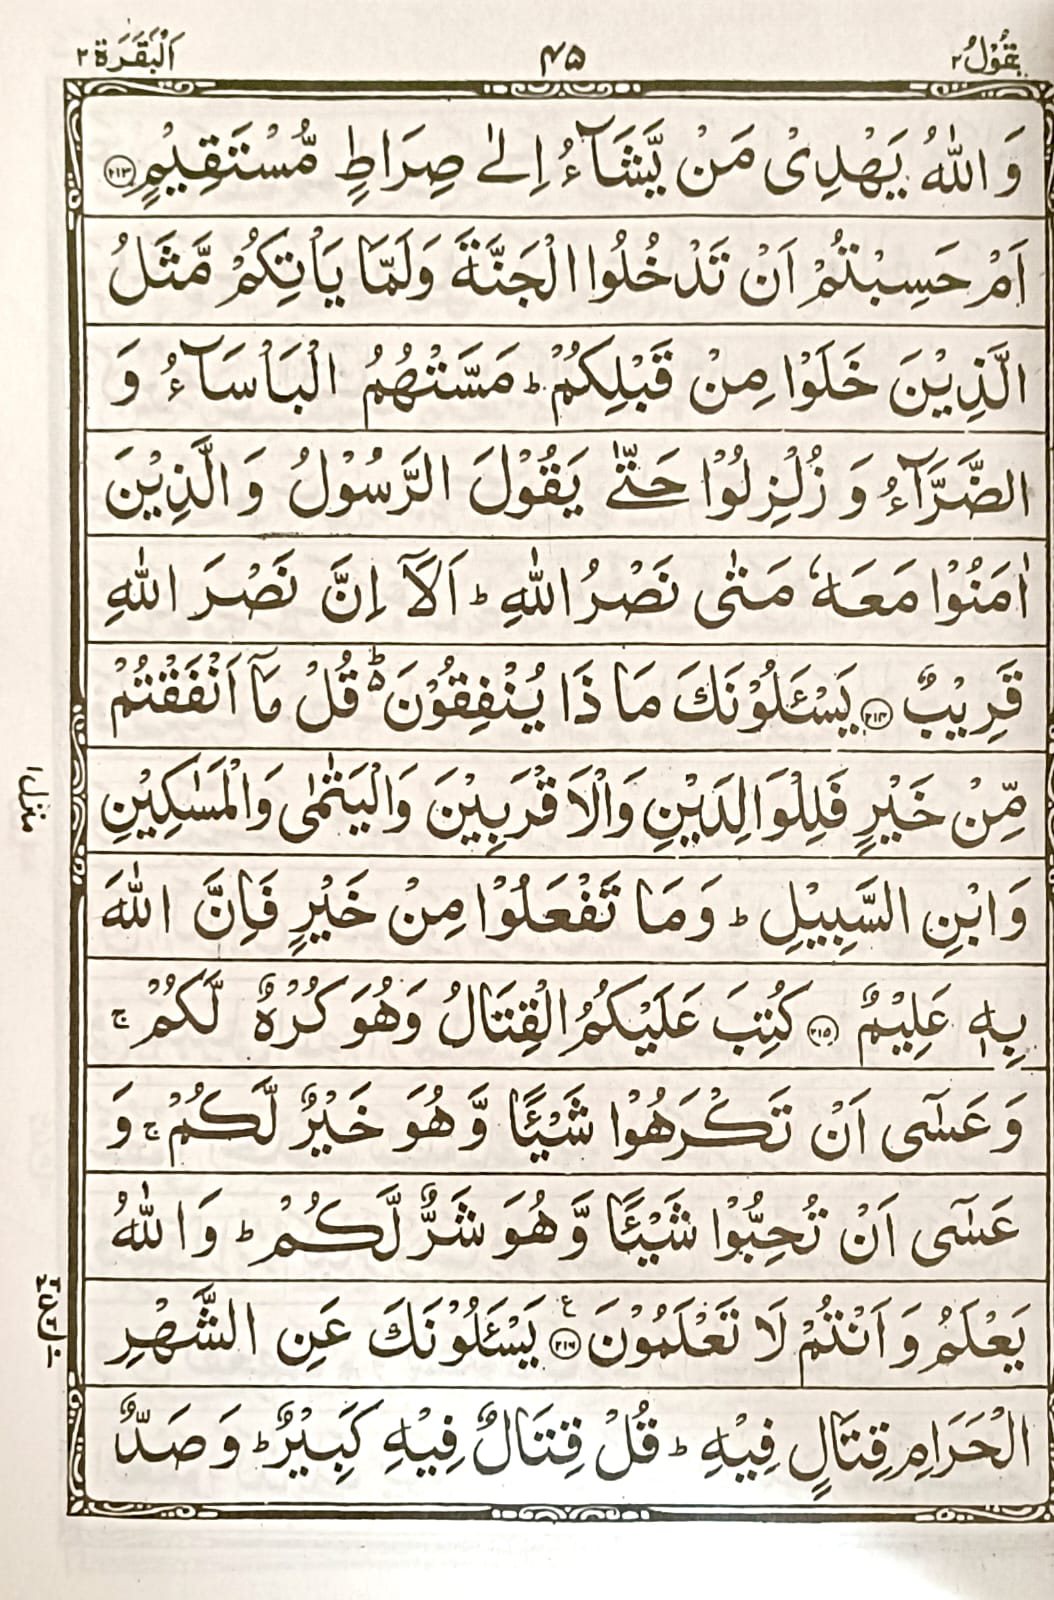 يقول ٢
٤٥
اَلْبَقَرَة ٢
وَ اللّٰهُ يَهْدِىْ مَنْ يَّشَآءُ اِلٰى صِرَاطٍ مُّسْتَقِيْمٍ ﴿۲۱۳﴾
اَمْ حَسِبْتُمْ اَنْ تَدْخُلُوا الْجَنَّةَ وَلَمَّا يَاْتِكُمْ مَّثَلُ
الَّذِيْنَ خَلَوْا مِنْ قَبْلِكُمْ ؕ مَسَّتْهُمُ الْبَاْسَآءُ وَ
الضَّرَّآءُ وَ زُلْزِلُوْا حَتّٰى يَقُوْلَ الرَّسُوْلُ وَ الَّذِيْنَ
اٰمَنُوْا مَعَهٗ مَتٰى نَصْرُ اللّٰهِ ؕ اَلَاۤ اِنَّ نَصْرَ اللّٰهِ
قَرِيْبٌ ﴿۲۱۴﴾ يَسْـَٔلُوْنَكَ مَا ذَا يُنْفِقُوْنَ ؕ۬ قُلْ مَاۤ اَنْفَقْتُمْ
مِّنْ خَيْرٍ فَلِلْوَالِدَيْنِ وَالْاَقْرَبِيْنَ وَالْيَتٰمٰى وَالْمَسٰكِيْنِ
وَ ابْنِ السَّبِيْلِ ؕ وَ مَا تَفْعَلُوْا مِنْ خَيْرٍ فَاِنَّ اللّٰهَ
بِهٖ عَلِيْمٌ ﴿۲۱۵﴾ كُتِبَ عَلَيْكُمُ الْقِتَالُ وَهُوَ كُرْهٌ لَّكُمْ ۚ
وَ عَسٰۤى اَنْ تَكْرَهُوْا شَيْـًٔا وَّ هُوَ خَيْرٌ لَّكُمْ ۚ وَ
عَسٰۤى اَنْ تُحِبُّوْا شَيْـًٔا وَّ هُوَ شَرٌّ لَّكُمْ ؕ وَ اللّٰهُ
يَعْلَمُ وَ اَنْتُمْ لَا تَعْلَمُوْنَ ﴿۲۱۶﴾ ع يَسْـَٔلُوْنَكَ عَنِ الشَّهْرِ
الْحَرَامِ قِتَالٍ فِيْهِ ؕ قُلْ قِتَالٌ فِيْهِ كَبِيْرٌ ؕ وَ صَدٌّ
منزل ١